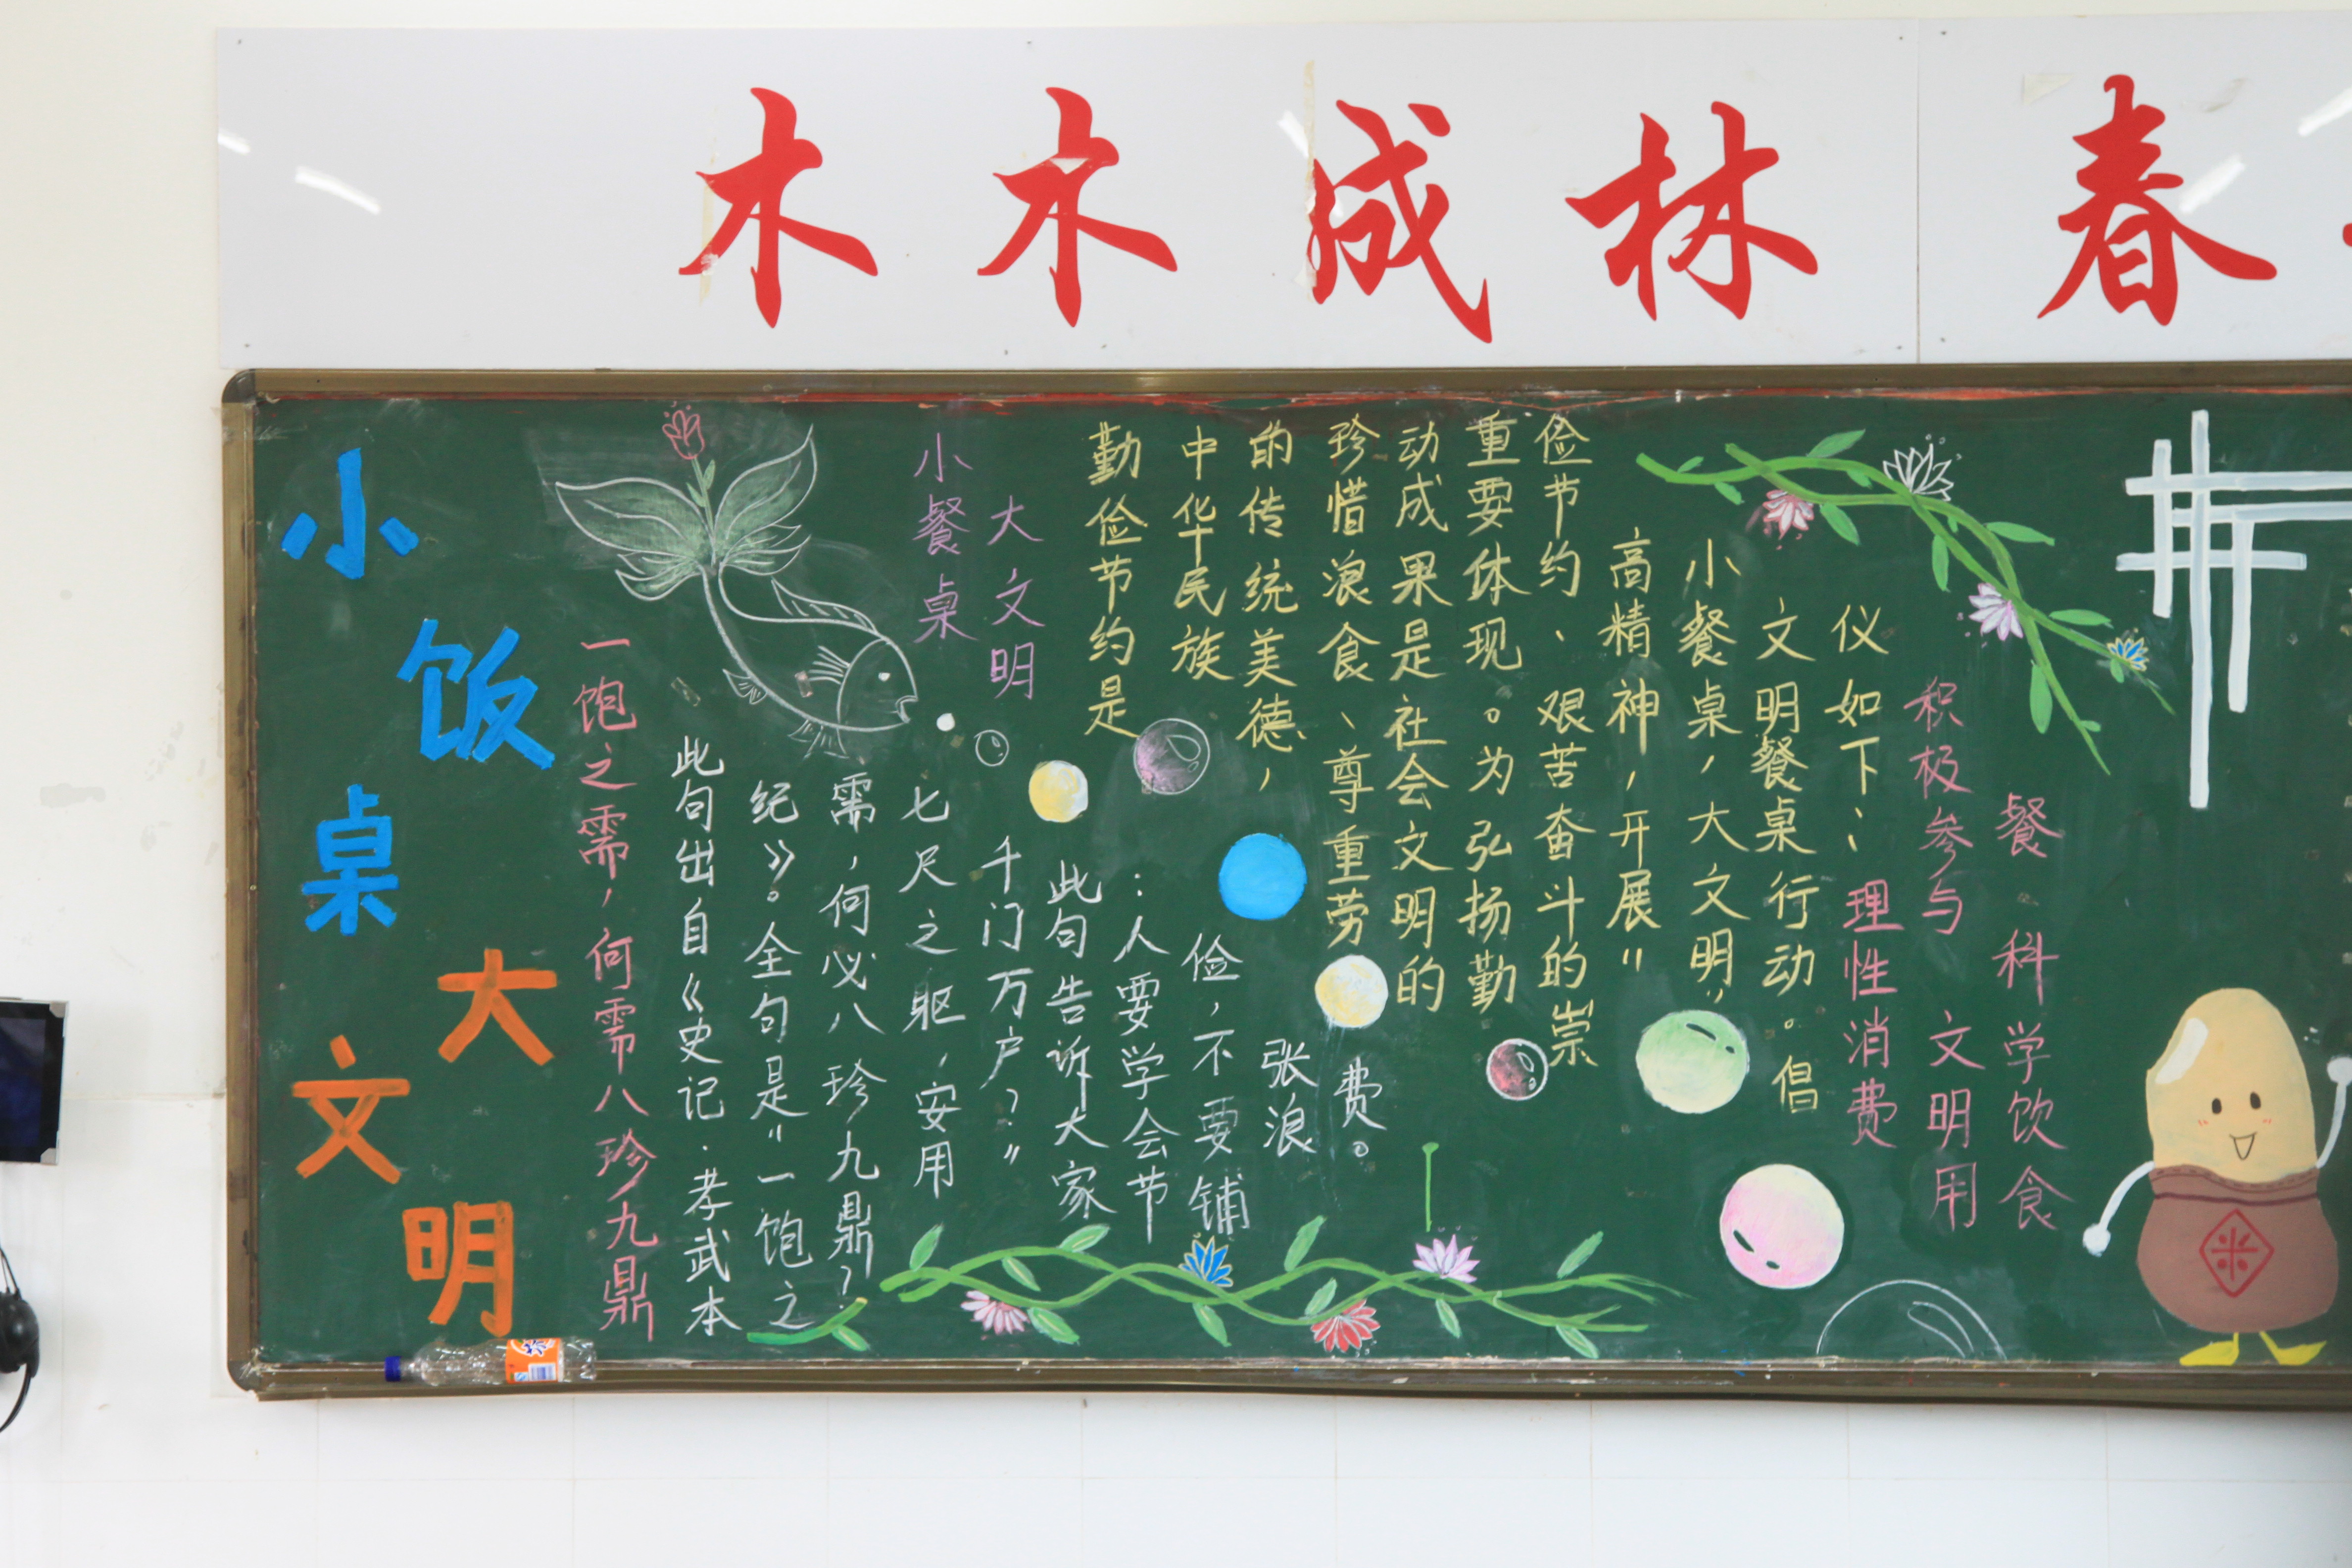 木木成林春
小饭桌
大文明
一饱之需，何需八珍九鼎
此句出自《史记·孝武本
纪》。全句是"一饱之
需，何必八珍九鼎？
七尺之躯，安用
千门万户？"
此句告诉大家
：人要学会节
俭，不要铺
张浪
费。
小餐桌
大文明
勤俭节约是
中华民族
的传统美德，
珍惜浪食、尊重劳
动成果是社会文明的
重要体现。为弘扬勤
俭节约、艰苦奋斗的崇
高精神，开展"
小餐桌，大文明"
文明餐桌行动。倡
仪如下：
理性消费
积极参与
文明用
餐·科学饮食
米